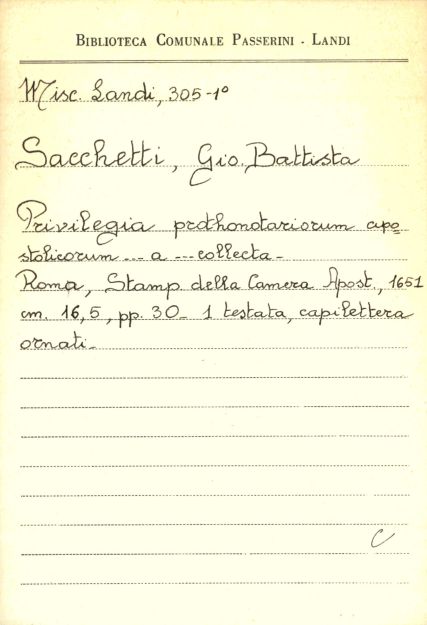 BIBLIOTECA COMUNALE PASSERINI - LANDI
Misc. Landi, 305-1º
Sacchetti, Gio. Battista
Privilegia prothonotariorum apo=
stolicorum --- a --- collecta -
Roma, Stamp. della Camera Apost., 1651
cm. 16,5, pp. 30 - 1 testata, capilettera
ornati -
C